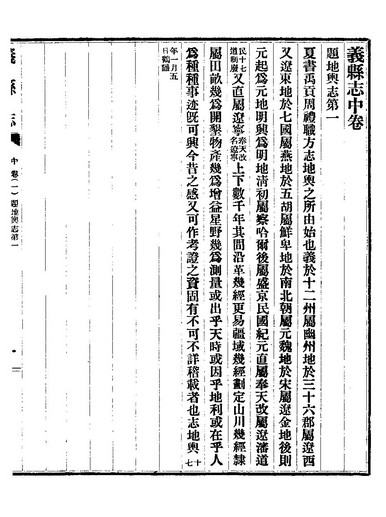 義縣志中卷
題地輿志第一
夏書禹貢周禮職方志地輿之所由始也義於十二州屬幽州地於三十六郡屬遼西
又遼東地於七國屬燕地於五胡屬鮮卑地於南北朝屬元魏地於宋屬遼金地後則
元起爲元地明興爲明地清初屬察哈爾後屬盛京民國紀元直屬奉天改屬遼瀋道
民十七道制廢又直屬遼寧奉天改名遼寧上下數千年其間沿革幾經更易疆域幾經劃定山川幾經隸
屬田畝幾爲開墾物產幾爲增益星野幾爲測量或出乎天時或因乎地利或在乎人
爲種種事迹旣可興今昔之感又可作考證之資固有不可不詳稽載者也志地輿十七
年一月五日鶴
義縣志 中卷(一) 題地輿志第一 一